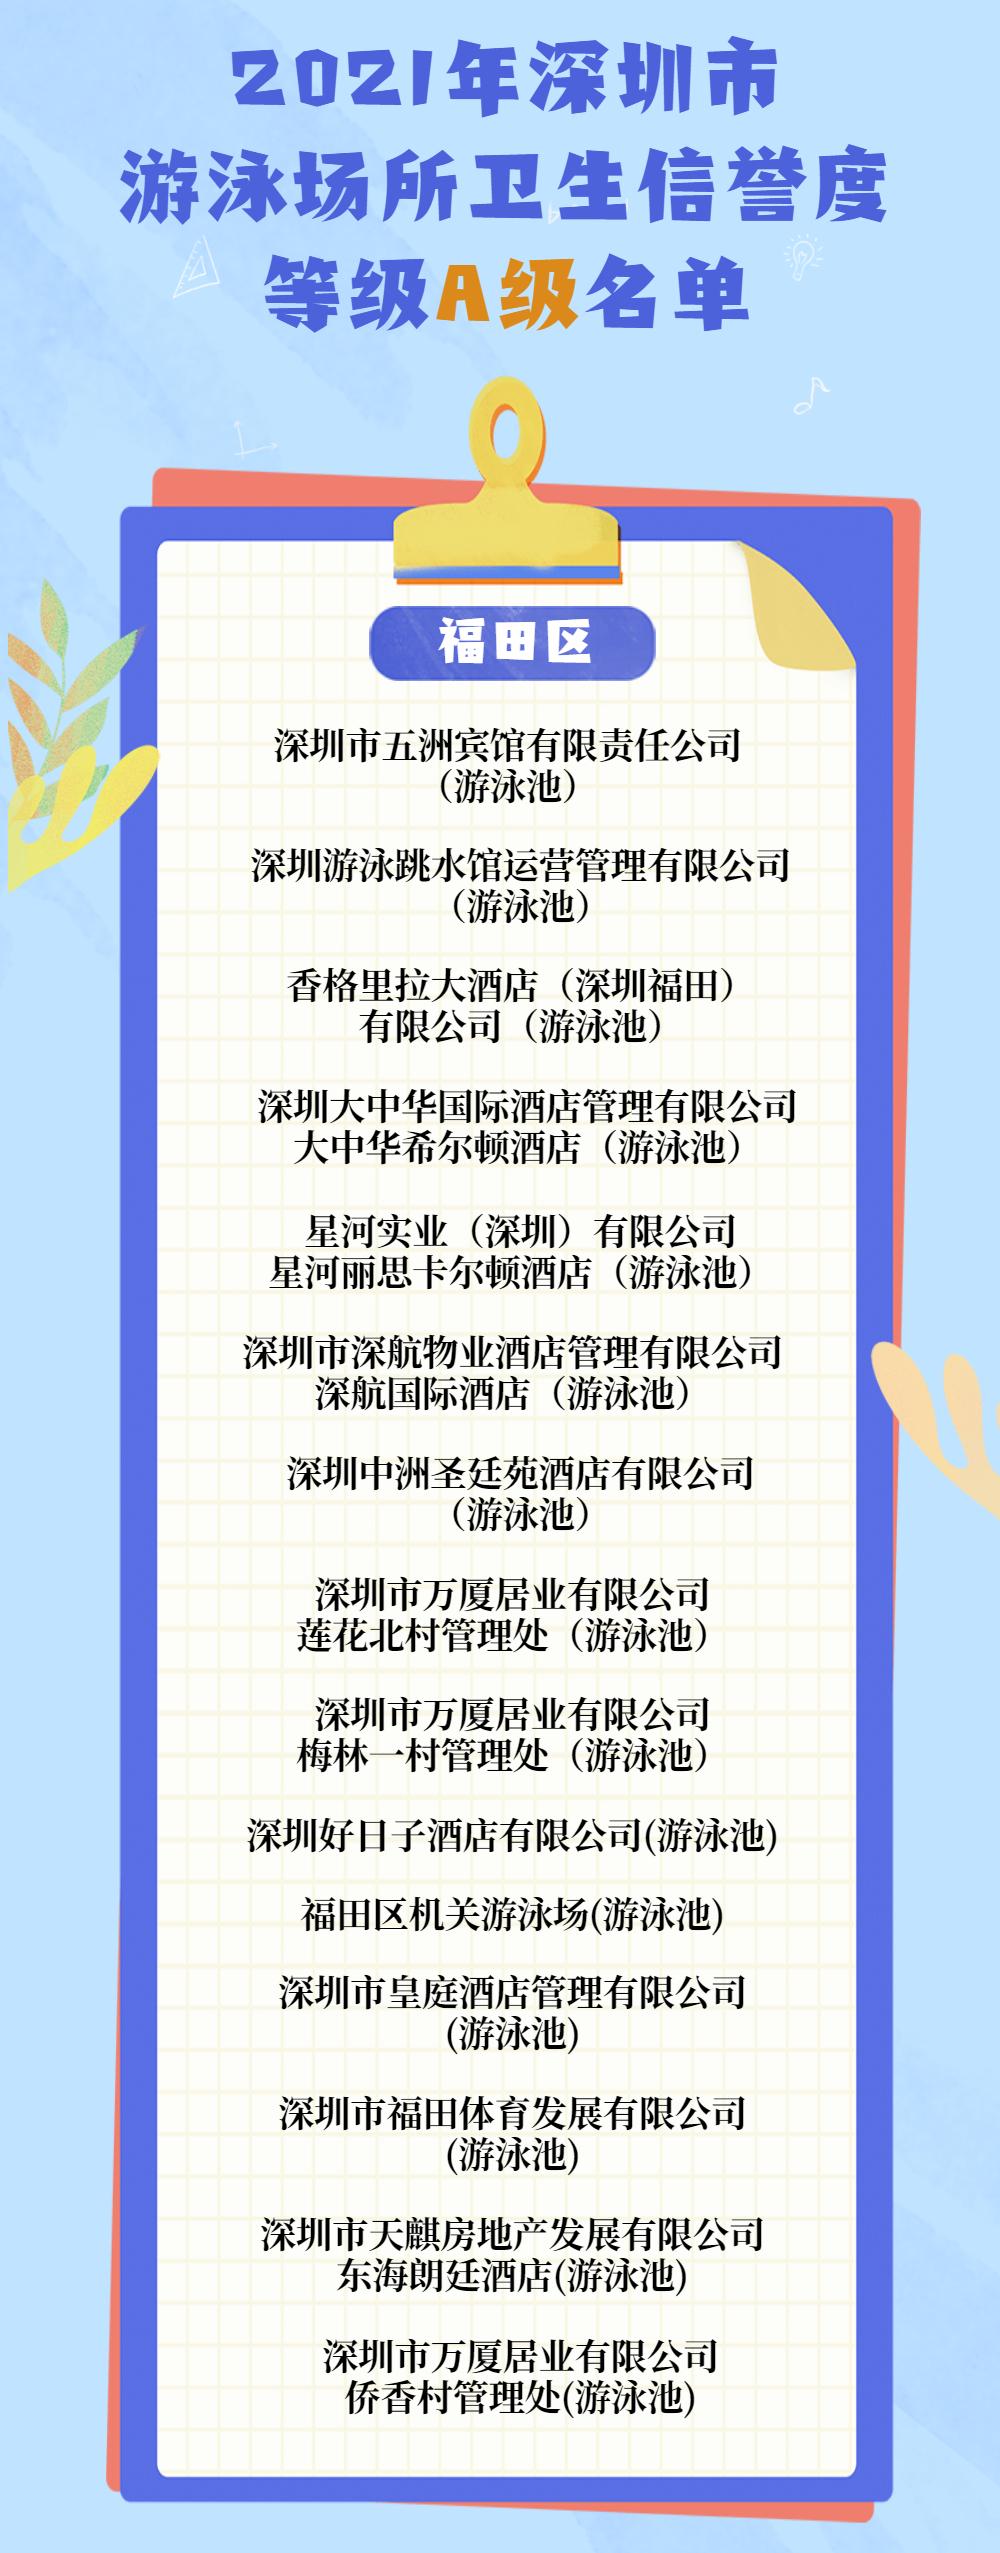 2021年深圳市
游泳场所卫生信誉度
等级A级名单
福田区
深圳市五洲宾馆有限责任公司
（游泳池）
深圳游泳跳水馆运营管理有限公司
（游泳池）
香格里拉大酒店（深圳福田）
有限公司（游泳池）
深圳大中华国际酒店管理有限公司
大中华希尔顿酒店（游泳池）
星河实业（深圳）有限公司
星河丽思卡尔顿酒店（游泳池）
深圳市深航物业酒店管理有限公司
深航国际酒店（游泳池）
深圳中洲圣廷苑酒店有限公司
（游泳池）
深圳市万厦居业有限公司
莲花北村管理处（游泳池）
深圳市万厦居业有限公司
梅林一村管理处（游泳池）
深圳好日子酒店有限公司(游泳池)
福田区机关游泳场(游泳池)
深圳市皇庭酒店管理有限公司
(游泳池)
深圳市福田体育发展有限公司
(游泳池)
深圳市天麒房地产发展有限公司
东海朗廷酒店(游泳池)
深圳市万厦居业有限公司
侨香村管理处(游泳池)